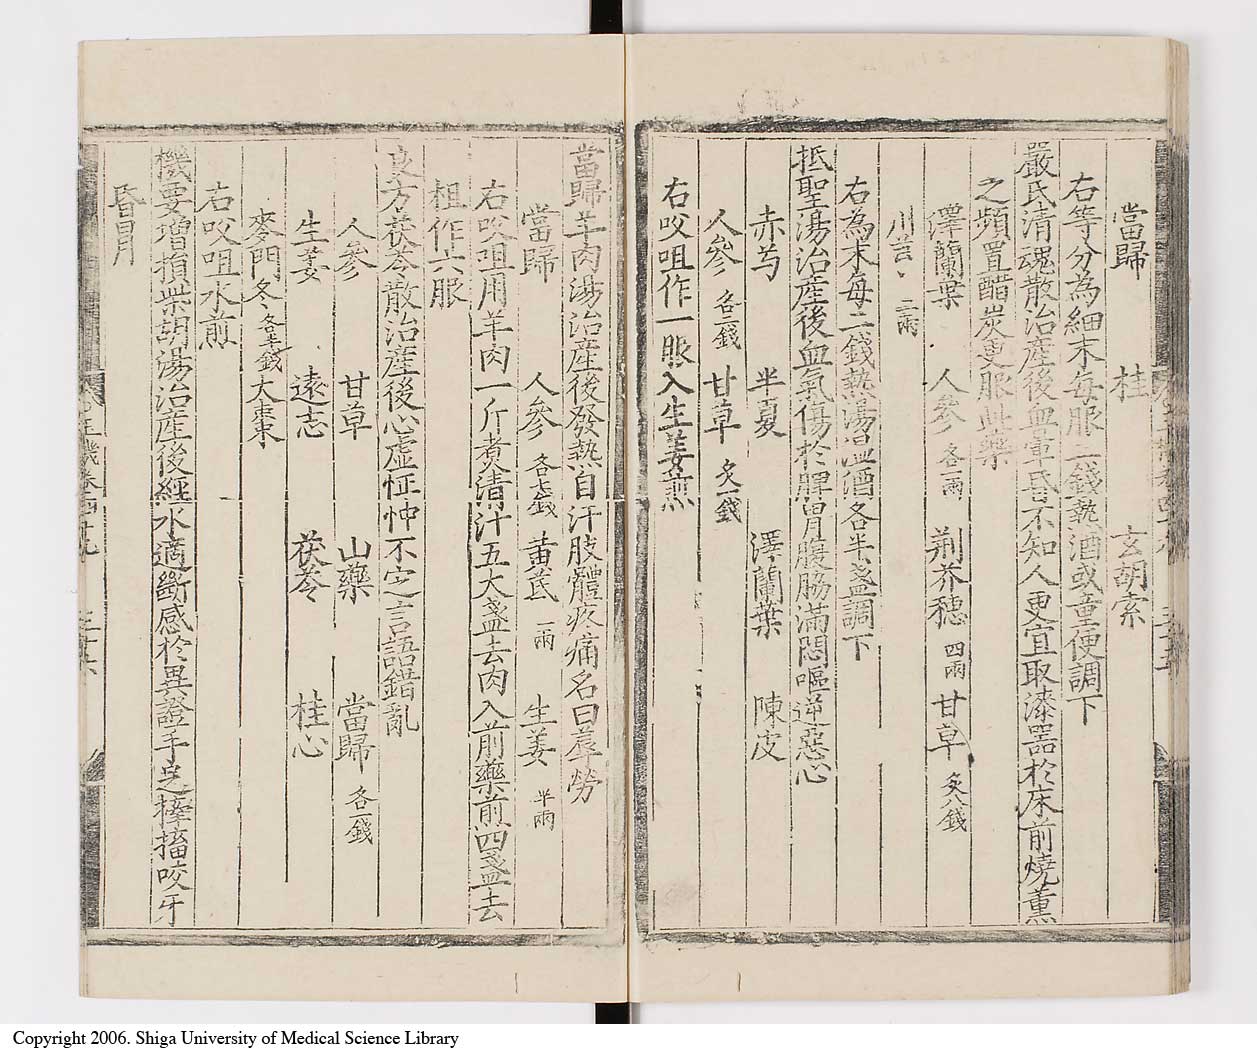 當歸 桂 玄胡索
右等分為細末每服一錢熱酒或童便調下
嚴氏清魂散治產後血暈昏不知人更宜取漆器於床前燒薰
之頻置醋炭更服此藥
澤蘭葉 人參各一兩 荊芥穗四兩 甘草炙八錢
川芎二兩
右為末每二錢熱湯温酒各半盞調下
抵聖湯治產後血氣傷於脾胃腹脇滿悶嘔逆惡心
赤芍 半夏 澤蘭葉 陳皮
人參各二錢 甘草炙一錢
右㕮咀作一服入生姜煎
當歸羊肉湯治產後發熱自汗肢體疼痛名曰蓐勞
當歸 人參各七錢 黃芪一兩 生姜半兩
右㕮咀用羊肉一斤煮清汁五大盞去肉入前藥煎四盞去
柤作六服
良方茯苓散治產後心虛怔忡不定言語錯亂
人參 甘草 山藥 當歸各二錢
生姜 遠志 茯苓 桂心
麥門冬各五錢 大棗
右㕮咀水煎
機要增損柴胡湯治產後經水適斷感於異證手足搐咬牙
昏冒
Copyright 2006. Shiga University of Medical Science Library